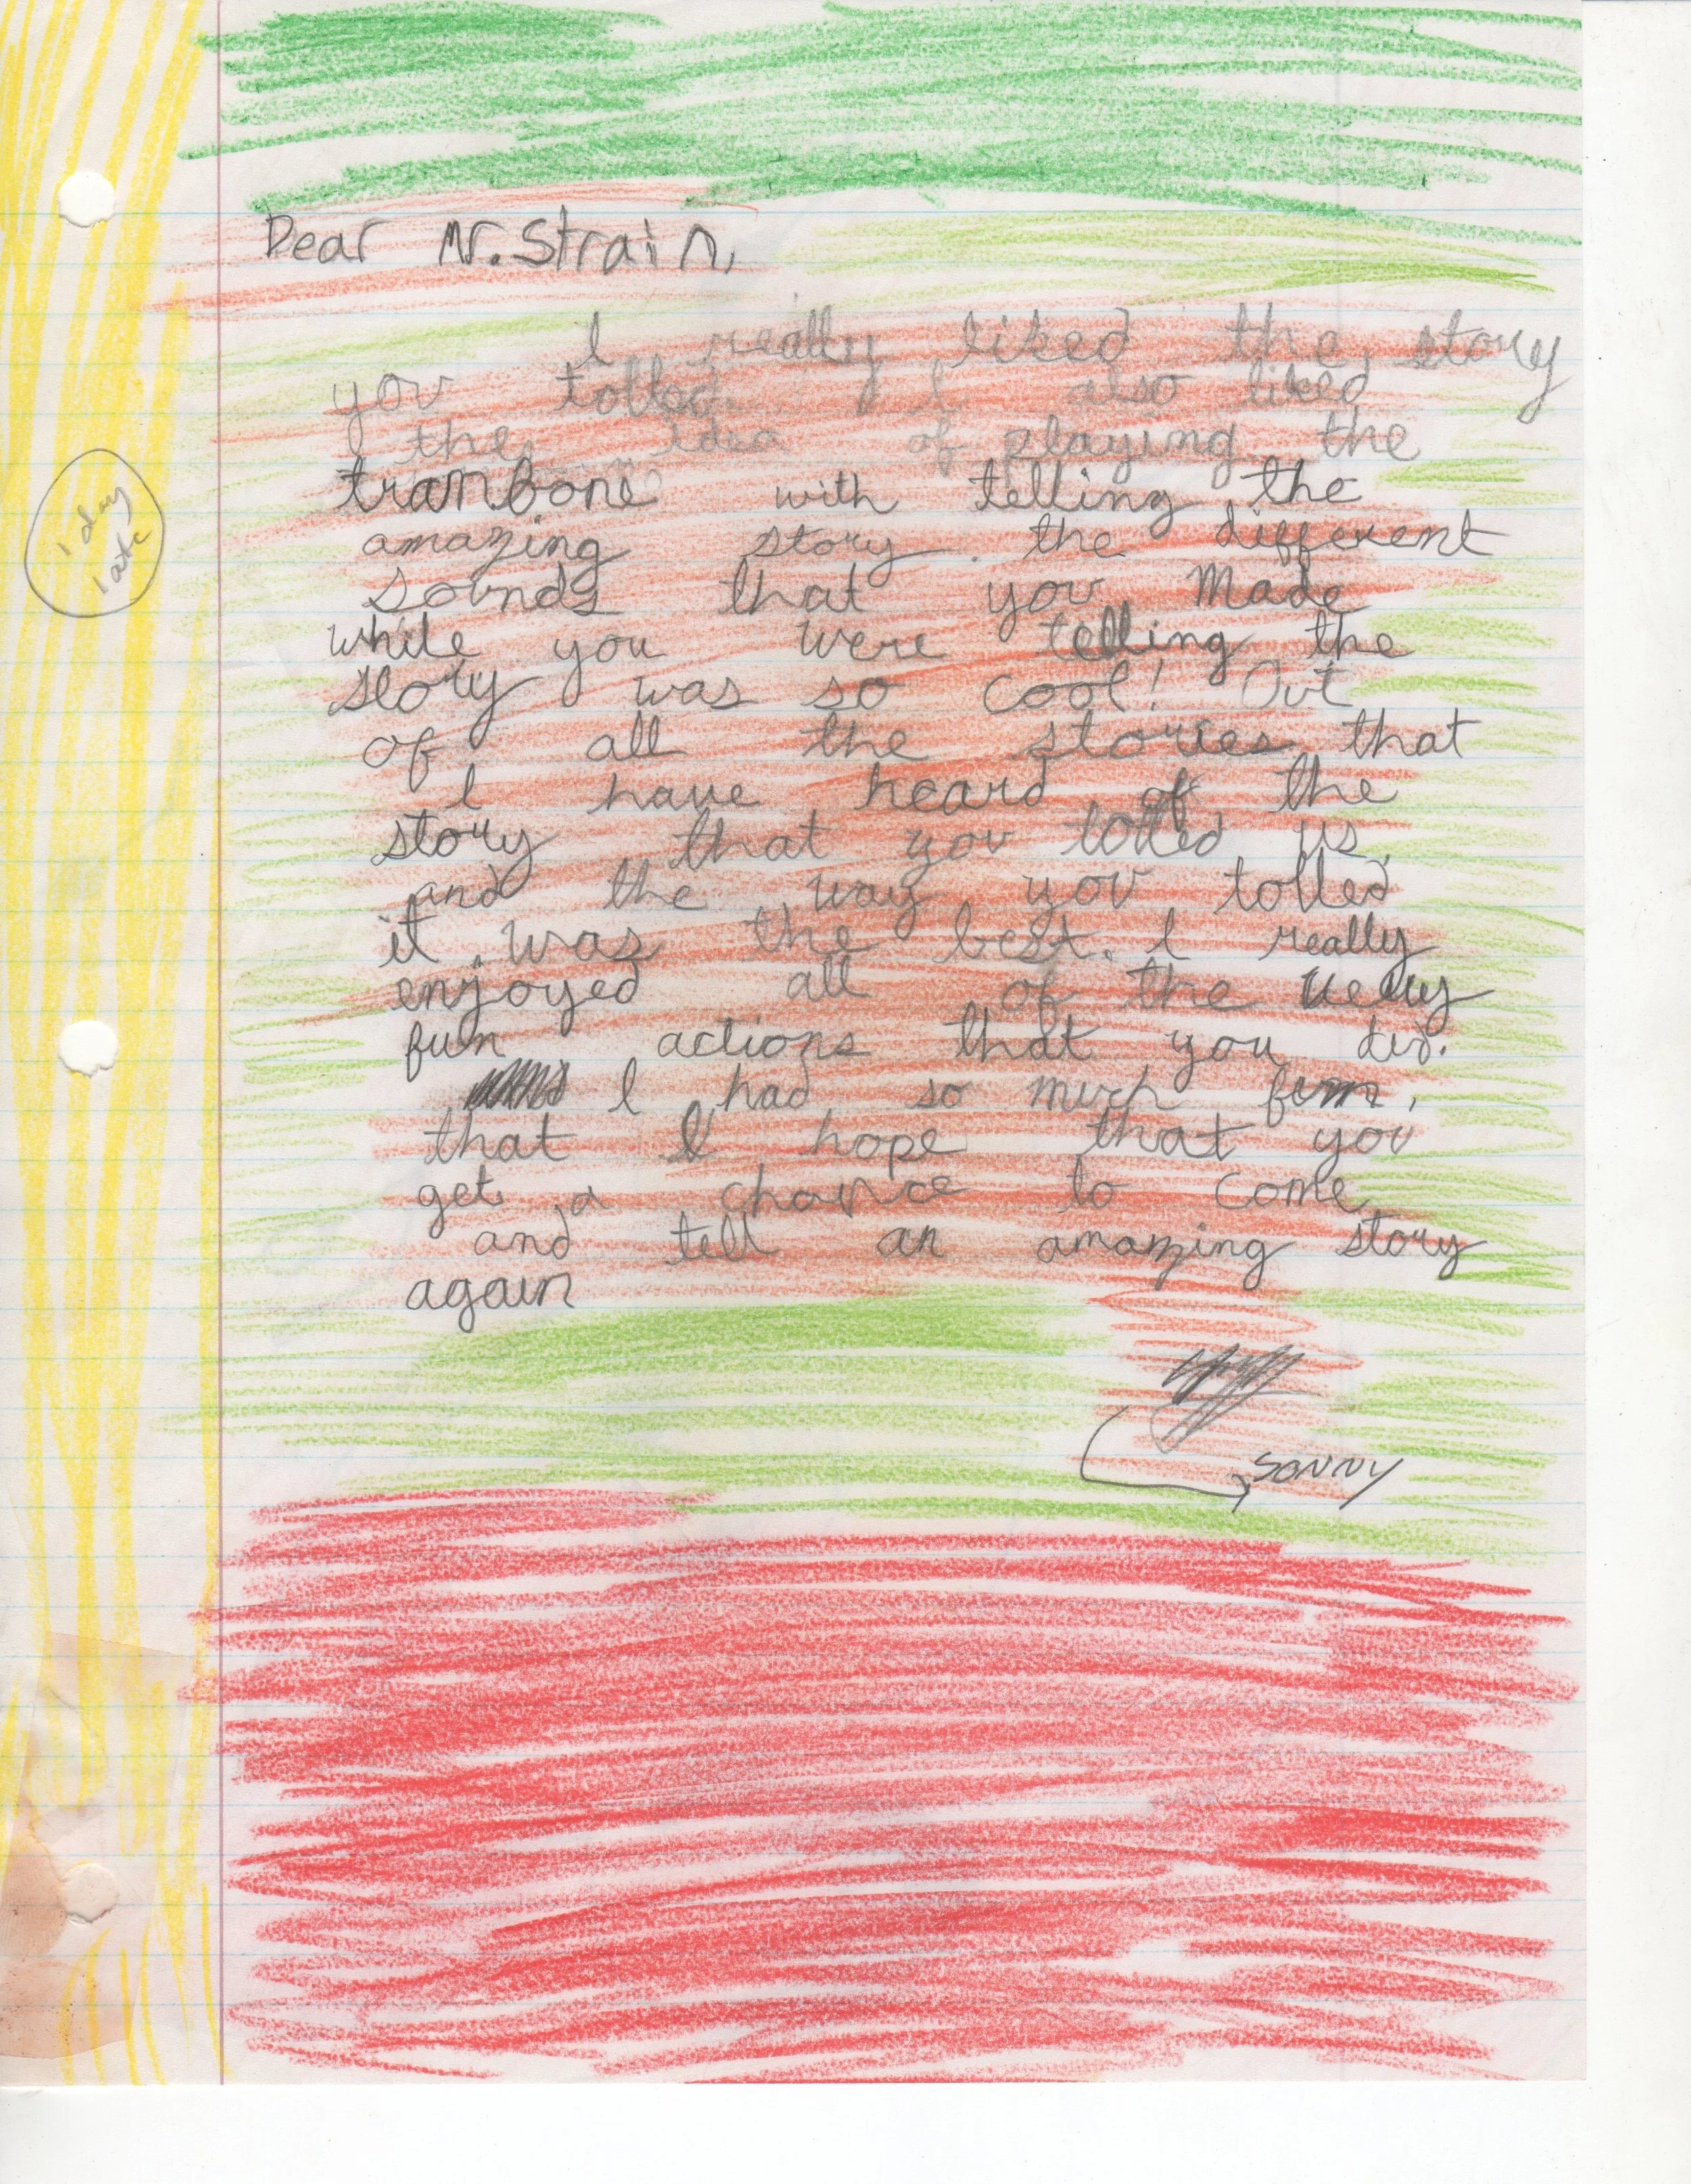 Dear Mr. Strain,
I really liked the story
you tolled. I also liked
the idea of playing the
tranbone with telling the
amazing story. the different
sounds that you Made
while you were telling the
story was so cool! Out
of all the stories that
I have heard of the
story that you tolled us
and the way you tolled
it was the best. I really
enjoyed all of the very
fun actions that you did.
I had so much fun,
that I hope that you
get a chance to come
and tell an amazing story
again
SONNY
1 day
late